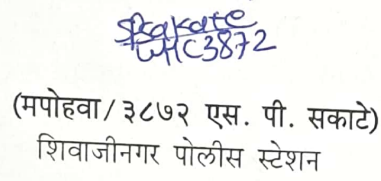 SPSakate
WHC3872
(मपोहवा/३८७२ एस. पी. सकाटे)
शिवाजीनगर पोलीस स्टेशन